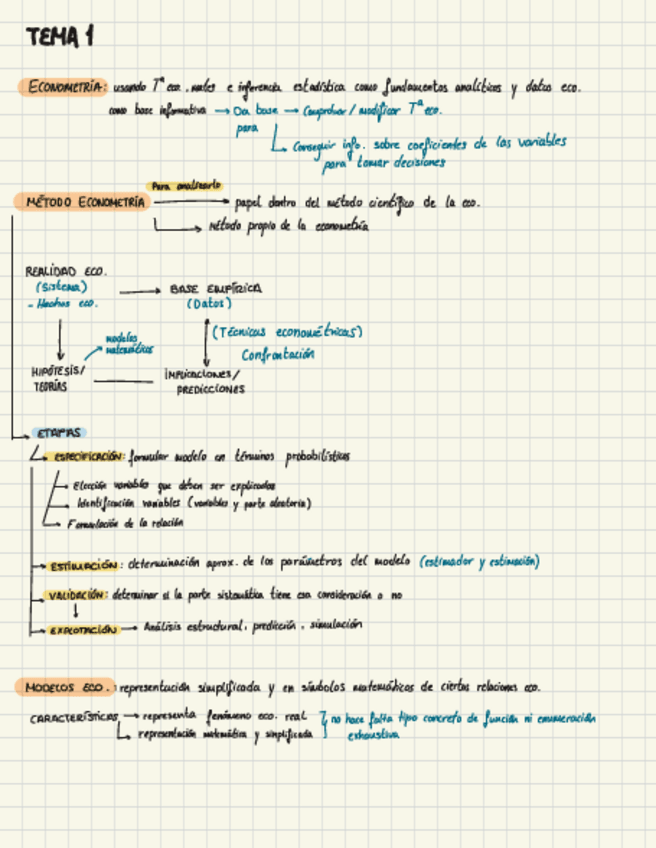 TEMA 1
ECONOMETRÍA: usando Tª eco. mates e inferencia estadística como fundamentos analíticos y datos eco.
como base informativa → Da base → Comprobar / modificar Tª eco.
para
Conseguir info. sobre coeficientes de las variables
para tomar decisiones
Para analizarlo
MÉTODO ECONOMETRÍA → papel dentro del método científico de la eco.
→ Método propio de la econometría
REALIDAD ECO.
(Sistema) → BASE EMPÍRICA
- Hechos eco. (Datos)
(Técnicas econométricas)
modelos
matemáticos
Confrontación
HIPÓTESIS/ IMPLICACIONES/
TEORÍAS PREDICCIONES
ETAPAS
ESPECIFICACIÓN: formular modelo en términos probabilísticos
Elección variables que deben ser explicadas
Identificación variables (variables y parte aleatoria)
Formulación de la relación
ESTIMACIÓN: determinación aprox. de los parámetros del modelo (estimador y estimación)
VALIDACIÓN: determinar si la parte sistemática tiene esa consideración o no
EXPLOTACIÓN → Análisis estructural, predicción, simulación
MODELOS ECO.: representación simplificada y en símbolos matemáticos de ciertas relaciones eco.
CARACTERÍSTICAS → representa fenómeno eco. real } no hace falta tipo concreto de función ni enumeración
→ representación matemática y simplificada } exhaustiva